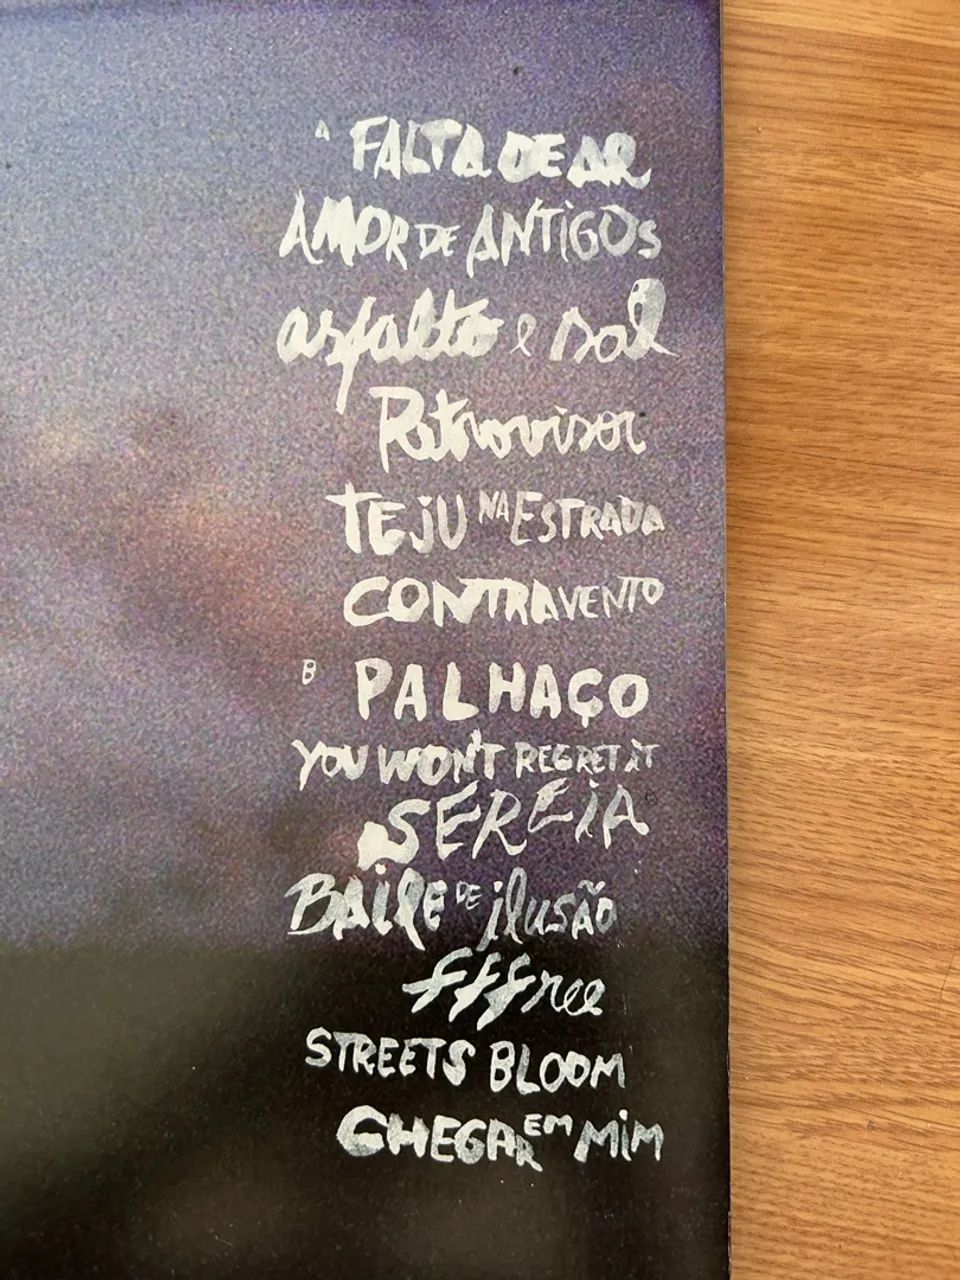 A FALTA DE AR
AMOR DE ANTIGOS
asfalto e sol
Retrovisor
TEJU NA ESTRADA
CONTRAVENTO
B PALHAÇO
YOU WON'T REGRET IT
SEREIA
BAILE DE ilusão
fffree
STREETS BLOOM
CHEGAR EM MIM